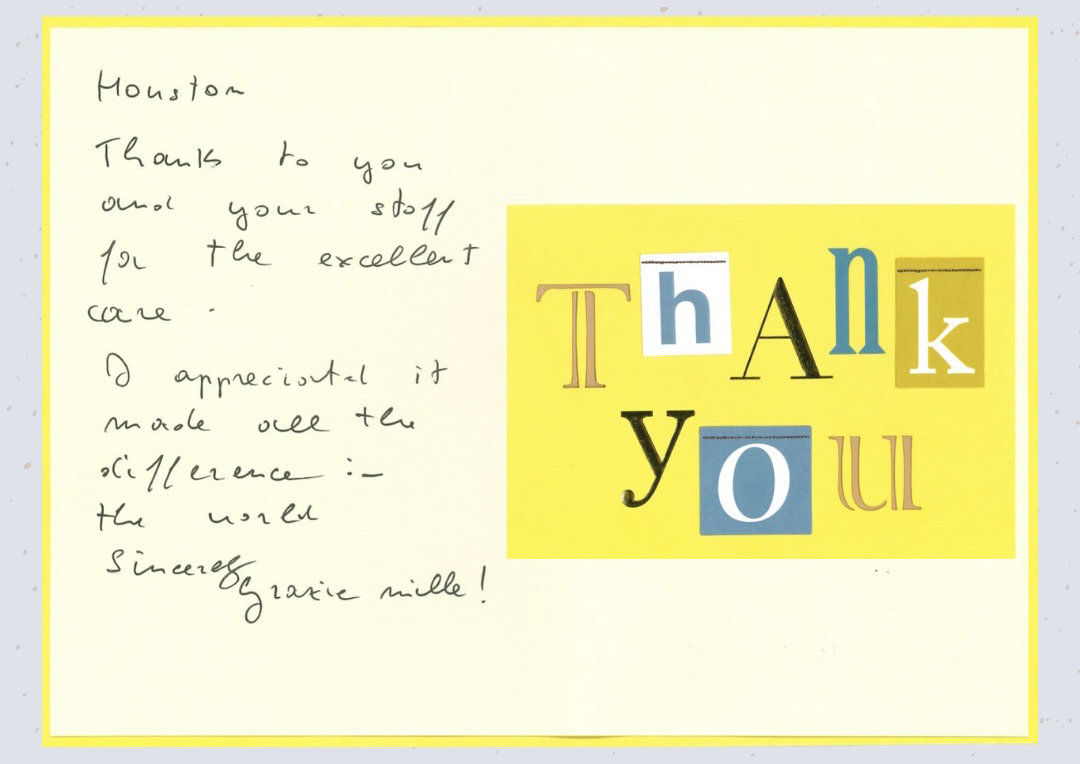 Houston
Thanks to you
and your staff
for the excellent
care .
I appreciated it
made all the
difference in
the world
Sincerely
Grazie mille!
ThAnk
you